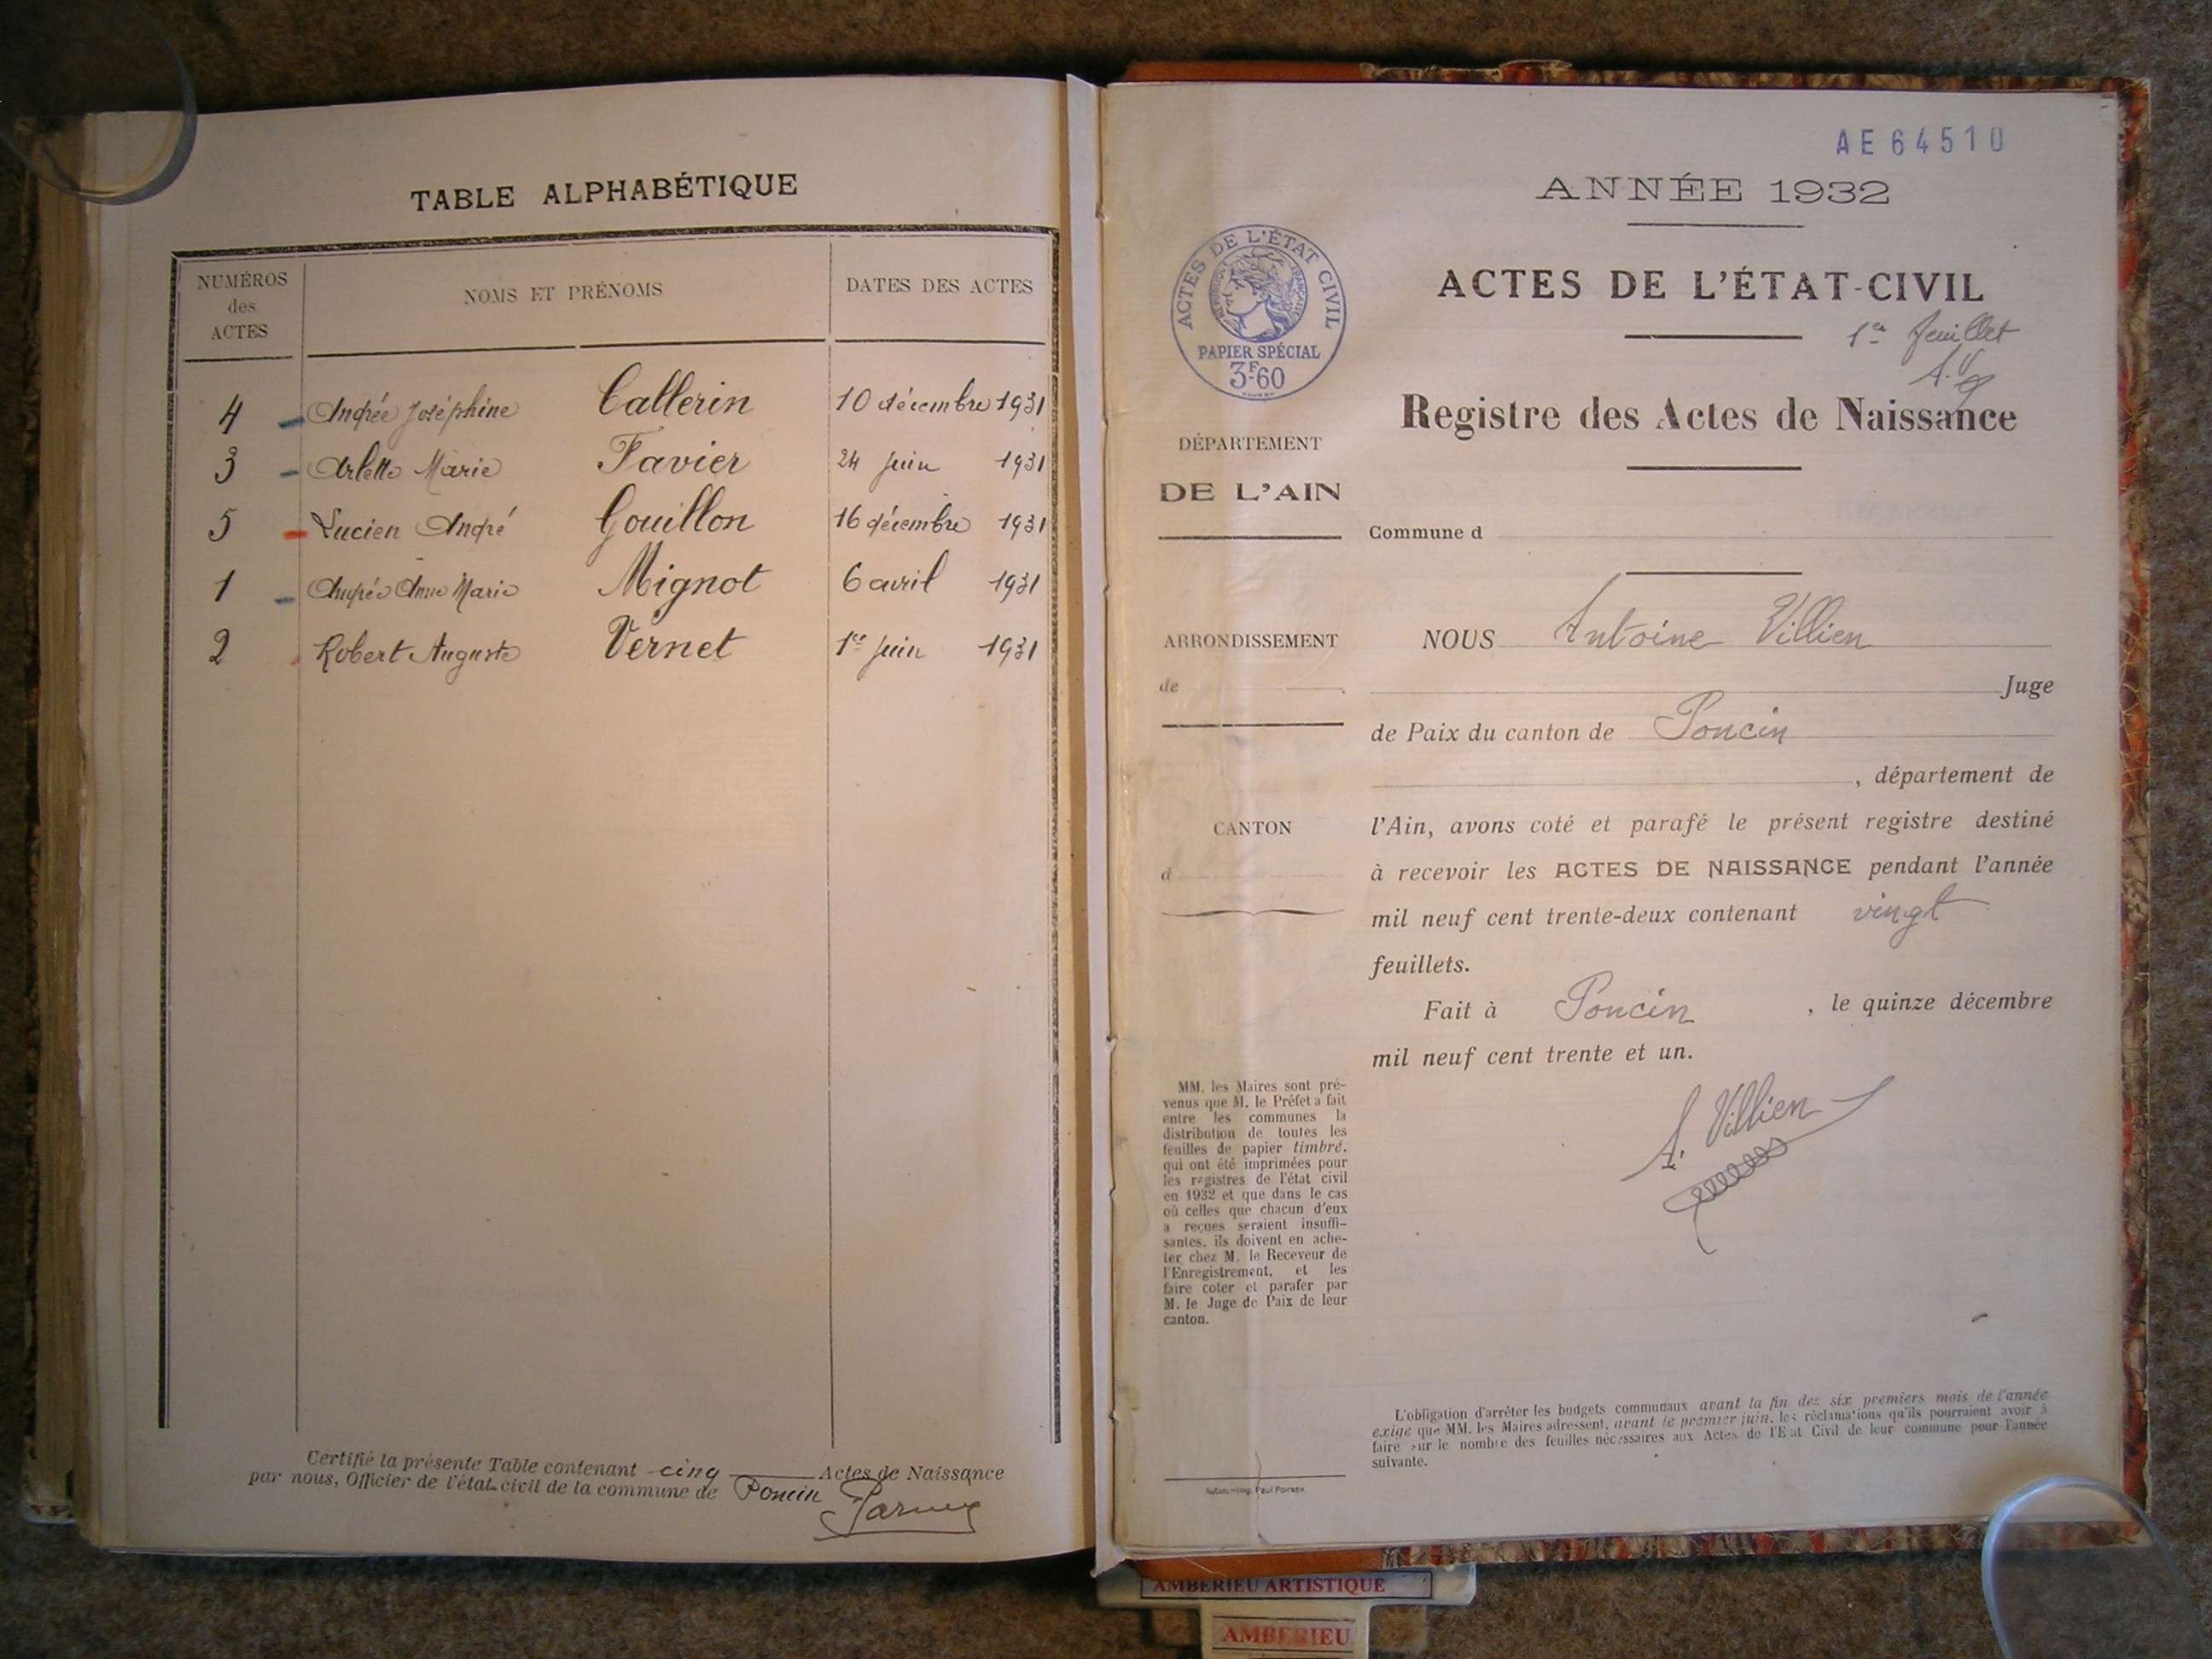 TABLE ALPHABÉTIQUE
NUMÉROS
des
ACTES
NOMS ET PRÉNOMS
DATES DES ACTES
4 Andrée Joséphine Callerin 10 décembre 1931
3 Arlette Marie Favier 24 juin 1931
5 Lucien André Gouillon 16 décembre 1931
1 Andrée Anne Marie Mignot 6 avril 1931
2 Robert Auguste Vernet 1er juin 1931
Certifié la présente Table contenant cinq Actes de Naissance
par nous, Officier de l'état civil de la commune de Poncin
AE 64510
ANNÉE 1932
ACTES DE L'ÉTAT-CIVIL
1er feuillet
A.V
Registre des Actes de Naissance
ACTES DE L'ÉTAT CIVIL
RÉPUBLIQUE FRANÇAISE
PAPIER SPÉCIAL
3F60
DÉPARTEMENT
DE L'AIN
Commune d
ARRONDISSEMENT
de
CANTON
d
NOUS Antoine Villien
Juge
de Paix du canton de Poncin
, département de
l'Ain, avons coté et parafé le présent registre destiné
à recevoir les ACTES DE NAISSANCE pendant l'année
mil neuf cent trente-deux contenant vingt
feuillets.
Fait à Poncin , le quinze décembre
mil neuf cent trente et un.
A. Villien
MM. les Maires sont pré-
venus que M. le Préfet a fait
entre les communes la
distribution de toutes les
feuilles de papier timbré,
qui ont été imprimées pour
les registres de l'état civil
en 1932 et que dans le cas
où celles que chacun d'eux
a reçues seraient insuffi-
santes, ils doivent en ache-
ter chez M. le Receveur de
l'Enregistrement, et les
faire coter et parafer par
M. le Juge de Paix de leur
canton.
L'obligation d'arrêter les budgets communaux avant la fin des six premiers mois de l'année
exige que MM. les Maires adressent, avant le premier juin, les réclamations qu'ils pourraient avoir à
faire sur le nombre des feuilles nécessaires aux Actes de l'Etat Civil de leur commune pour l'année
suivante.
AMBERIEU ARTISTIQUE
AMBERIEU